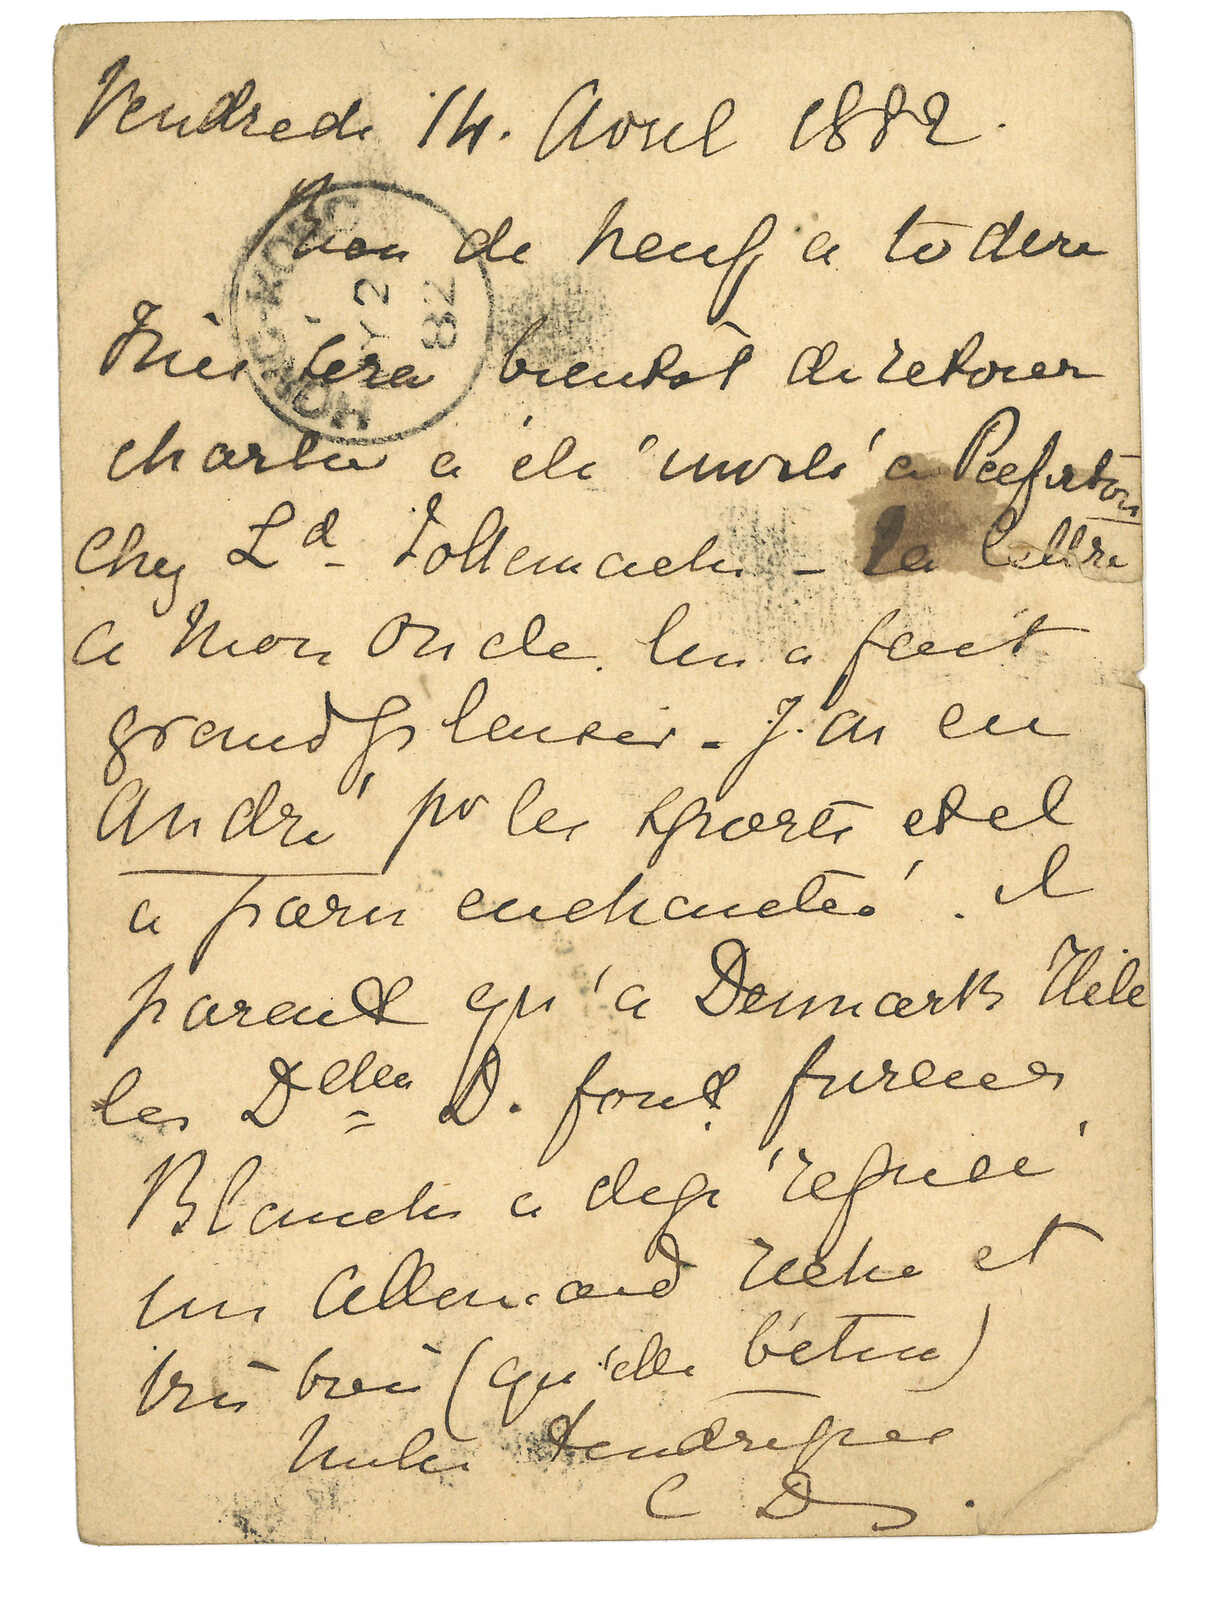 Vendredi 14. Avril 1882.
Rien de neuf a te dire
sera bientôt de retour
Charlie a été invité a Peckforton
chez Ld Tollemache - Ta lettre
a Mon Oncle lui a fait
grand plaisir - J'ai eu
André pr les sports et il
a paru enchanté. il
parait qu'a Denmark Hill
les Delles D. font fureur
Blanche a déjà refusé
un Allemand riche et
très bien (qu'elle bêtise)
Milles tendresses
C D
HONG-KONG
Y 2
82